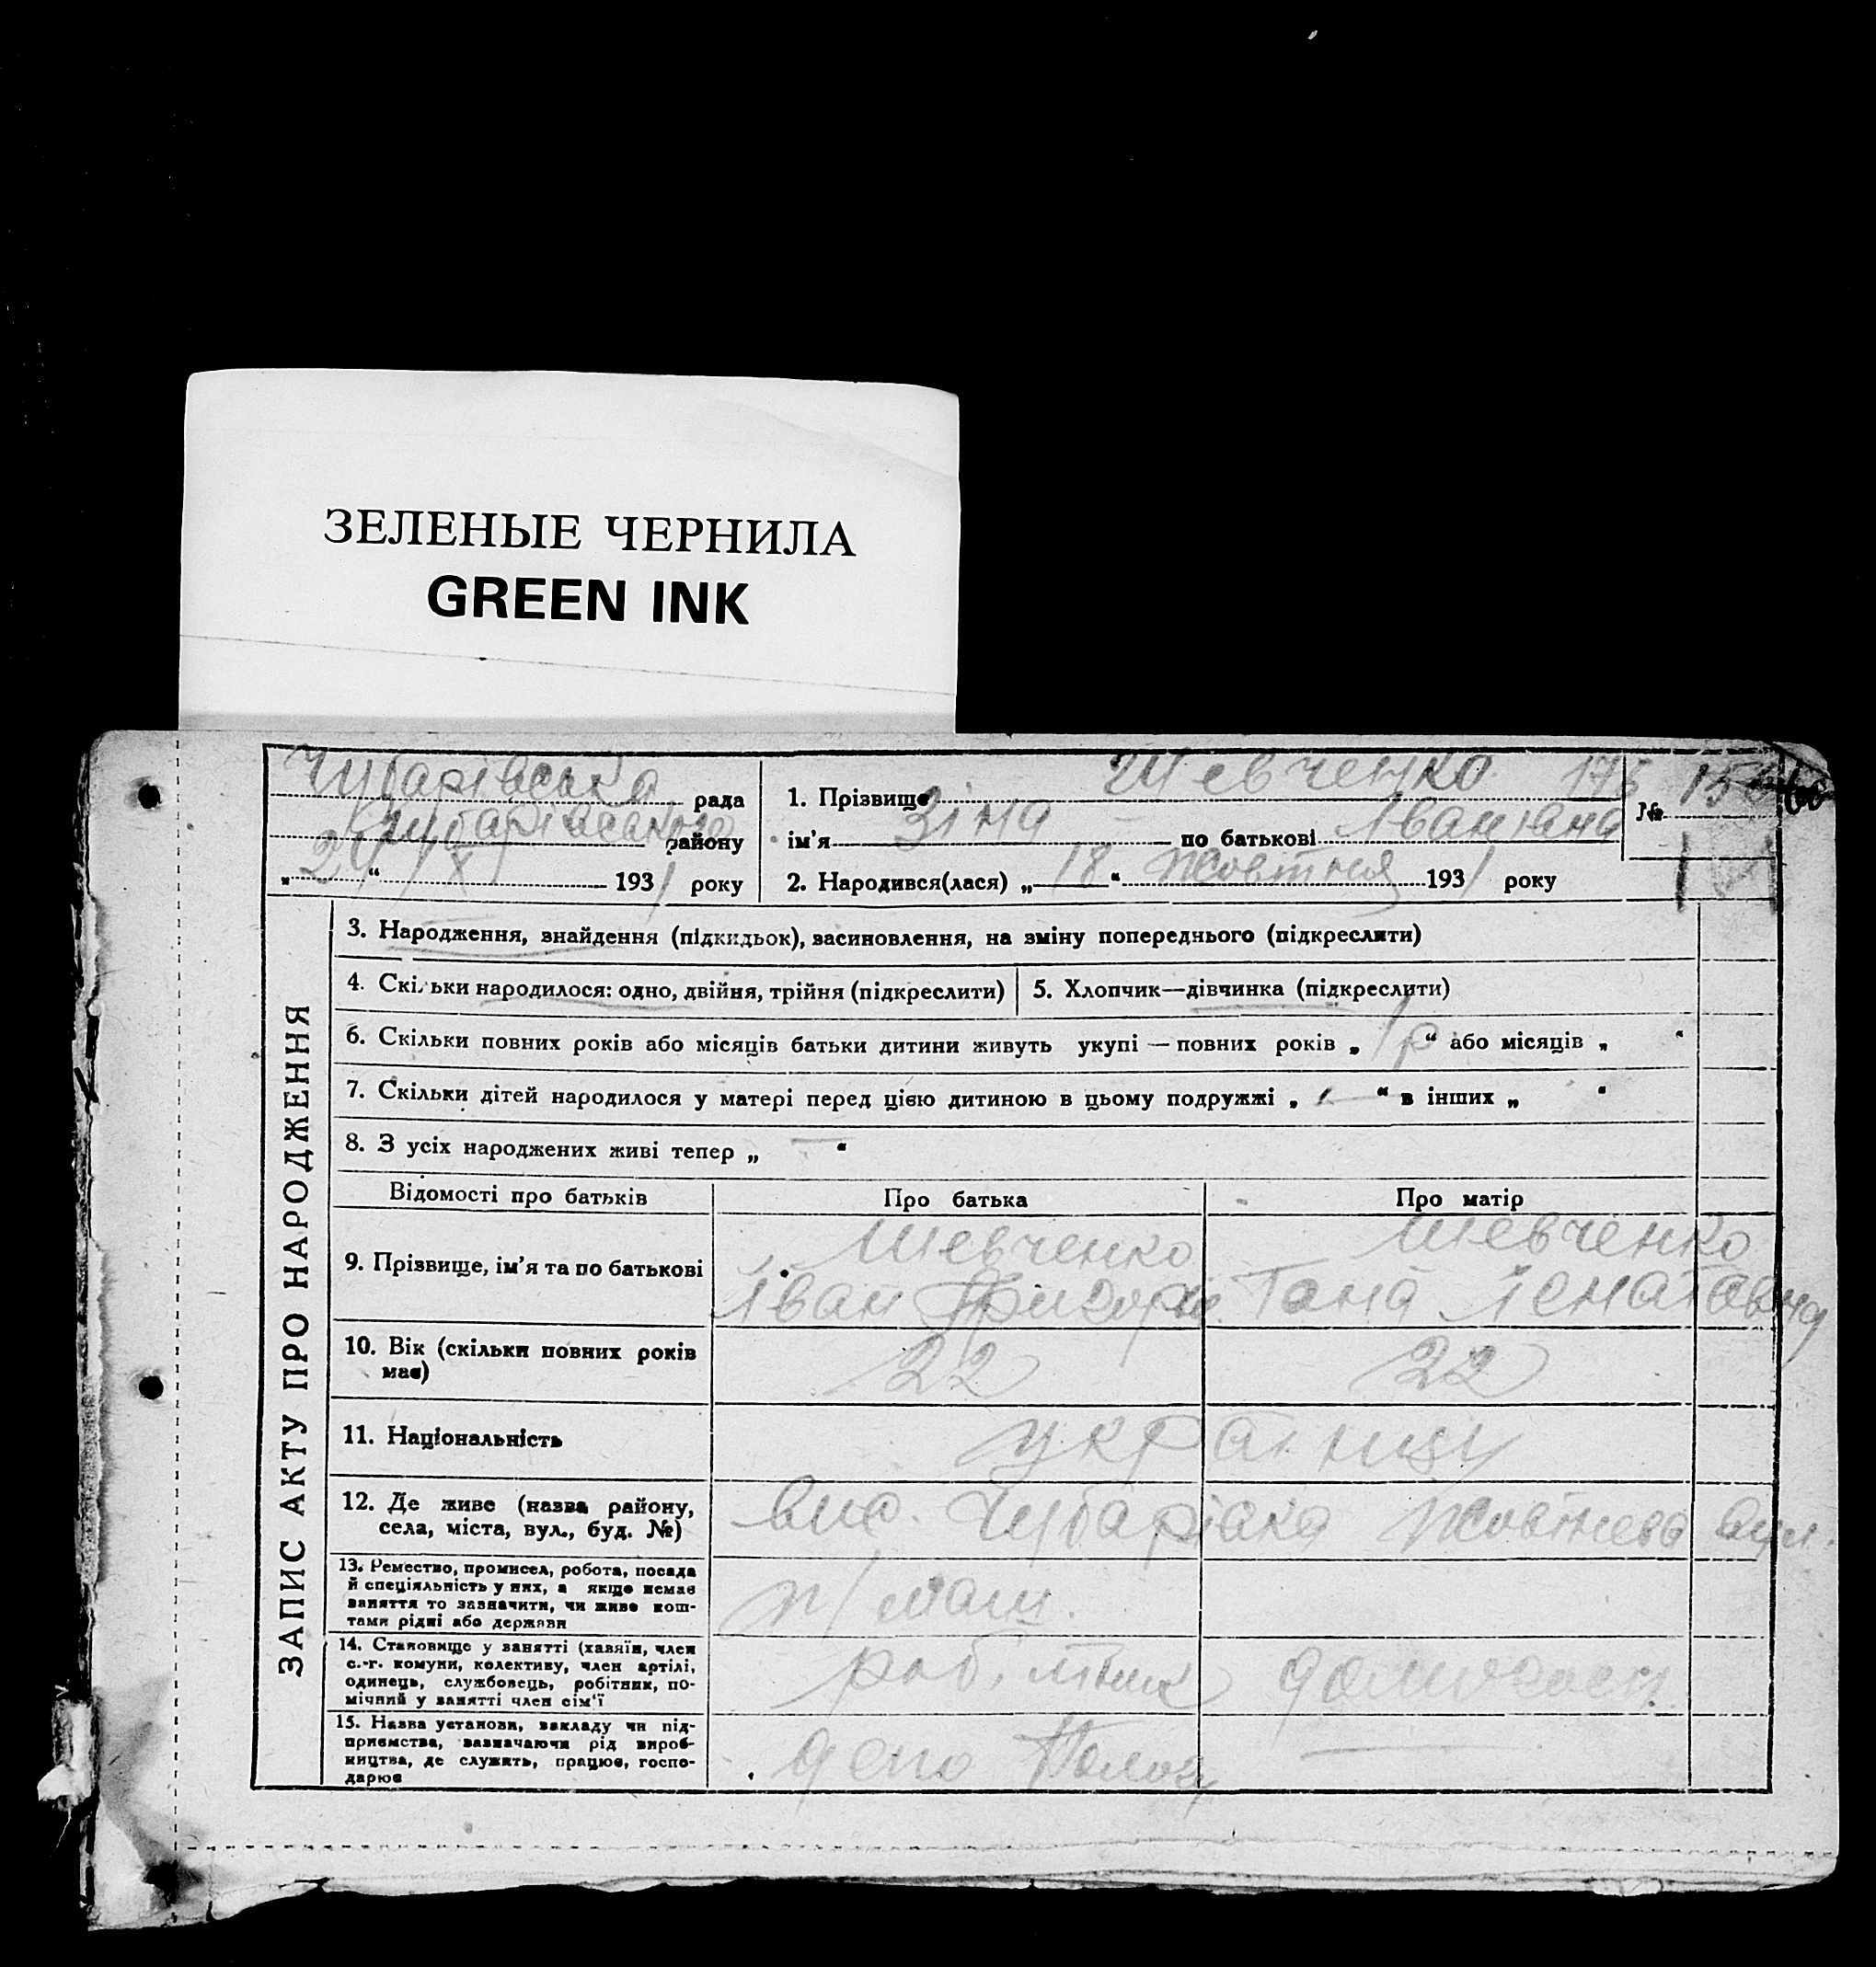 ЗЕЛЕНЫЕ ЧЕРНИЛА
GREEN INK
Чубарівська рада
Чубарівського району
„ 24 “ X 1931 року
1. Прізвище Шевченко 175
ім'я Зіна по батькові Іванівна
2. Народився(лася) „ 18 “ жовтня 1931 року
№
ЗАПИС АКТУ ПРО НАРОДЖЕННЯ
3. Народження, знайдення (підкидьок), засиновлення, на зміну попереднього (підкреслити)
4. Скільки народилося: одно, двійня, трійня (підкреслити)
5. Хлопчик—дівчинка (підкреслити)
6. Скільки повних років або місяців батьки дитини живуть укупі — повних років „ 1 р “ або місяців „ “
7. Скільки дітей народилося у матері перед цією дитиною в цьому подружжі „ — “ в інших „ “
8. З усіх народжених живі тепер „ — “
Відомості про батьків Про батька Про матір
9. Прізвище, ім'я та по батькові
Шевченко
Іван Григор.
Шевченко
Гана
10. Вік (скільки повних років має)
22
22
11. Національність
українци
12. Де живе (назва району, села, міста, вул., буд. №)
вис. Чубарівка Жовтнева вул.
13. Ремество, промисел, робота, посада й спеціяльність у них, а якщо немає заняття то зазначити, чи живе коштами рідні або держави
п/маш.
14. Становище у занятті (хазяїн, член с.-г. комуни, колективу, член артілі, одинець, службовець, робітник, помічний у занятті член сім'ї
робітник
домогосп.
15. Назва установи, закладу чи підприємства, зазначаючи рід виробництва, де служить, працює, господарює
депо Пологи
—